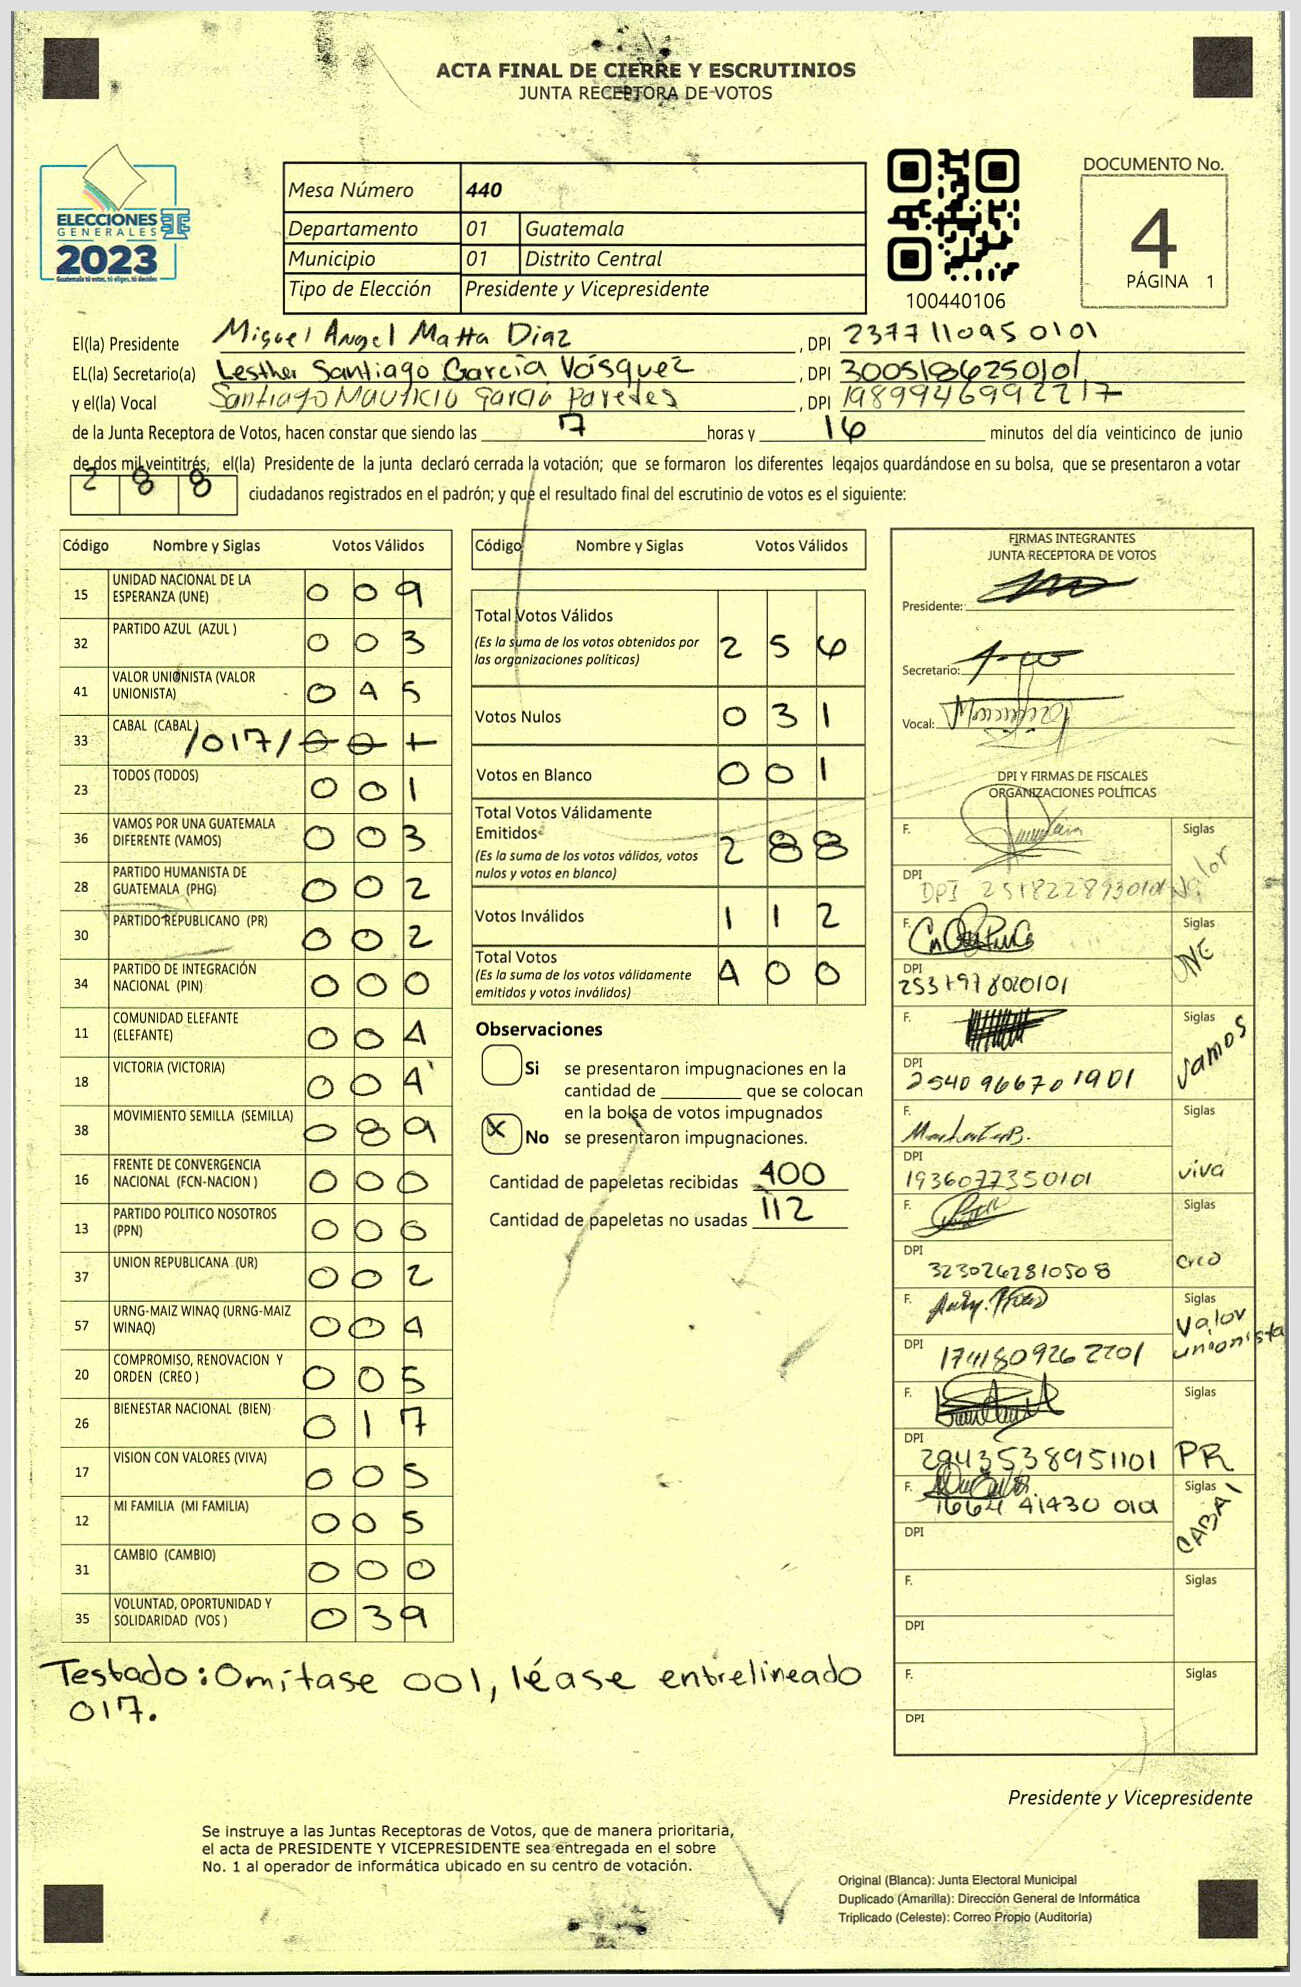 ACTA FINAL DE CIERRE Y ESCRUTINIOS
JUNTA RECEPTORA DE VOTOS
ELECCIONES
GENERALES
2023
Mesa Número 440
Departamento 01 Guatemala
Municipio 01 Distrito Central
Tipo de Elección Presidente y Vicepresidente
100440106
DOCUMENTO No.
4
PÁGINA 1
El(la) Presidente Miguel Angel Matta Diaz, DPI 2377110950101
EL(la) Secretario(a) Lesther Santiago García Vásquez, DPI 3005186250101
y el(la) Vocal Santiago Mauricio García Paredes, DPI 1989946992217
de la Junta Receptora de Votos, hacen constar que siendo las 17 horas y 16 minutos del día veinticinco de junio
de dos mil veintitrés, el(la) Presidente de la junta declaró cerrada la votación; que se formaron los diferentes legajos guardándose en su bolsa, que se presentaron a votar
288 ciudadanos registrados en el padrón; y que el resultado final del escrutinio de votos es el siguiente:
Código Nombre y Siglas Votos Válidos
15 UNIDAD NACIONAL DE LA ESPERANZA (UNE) 0 0 9
32 PARTIDO AZUL (AZUL ) 0 0 3
41 VALOR UNIONISTA (VALOR UNIONISTA) 0 4 5
33 CABAL (CABAL ) /017/ 0 0 1
23 TODOS (TODOS) 0 0 1
36 VAMOS POR UNA GUATEMALA DIFERENTE (VAMOS) 0 0 3
28 PARTIDO HUMANISTA DE GUATEMALA (PHG) 0 0 2
30 PARTIDO REPUBLICANO (PR) 0 0 2
34 PARTIDO DE INTEGRACIÓN NACIONAL (PIN) 0 0 0
11 COMUNIDAD ELEFANTE (ELEFANTE) 0 0 4
18 VICTORIA (VICTORIA) 0 0 4
38 MOVIMIENTO SEMILLA (SEMILLA) 0 8 9
16 FRENTE DE CONVERGENCIA NACIONAL (FCN-NACION ) 0 0 0
13 PARTIDO POLITICO NOSOTROS (PPN) 0 0
37 UNION REPUBLICANA (UR) 0 0 2
57 URNG-MAIZ WINAQ (URNG-MAIZ WINAQ) 0 0 4
20 COMPROMISO, RENOVACION Y ORDEN (CREO ) 0 0 5
26 BIENESTAR NACIONAL (BIEN) 0 1 7
17 VISION CON VALORES (VIVA) 0 0 5
12 MI FAMILIA (MI FAMILIA) 0 0 5
31 CAMBIO (CAMBIO) 0 0 0
35 VOLUNTAD, OPORTUNIDAD Y SOLIDARIDAD (VOS ) 0 3 9
Testado: Omítase 001, léase entrelineado
017.
Código Nombre y Siglas Votos Válidos
Total Votos Válidos
(Es la suma de los votos obtenidos por las organizaciones políticas) 2 5 6
Votos Nulos 0 3 1
Votos en Blanco 0 0 1
Total Votos Válidamente Emitidos
(Es la suma de los votos válidos, votos nulos y votos en blanco) 2 8 8
Votos Inválidos 1 1 2
Total Votos
(Es la suma de los votos válidamente emitidos y votos inválidos) 4 0 0
Observaciones
Si se presentaron impugnaciones en la
cantidad de ________ que se colocan
en la bolsa de votos impugnados
X No se presentaron impugnaciones.
Cantidad de papeletas recibidas 400
Cantidad de papeletas no usadas 112
FIRMAS INTEGRANTES
JUNTA RECEPTORA DE VOTOS
Presidente:
Secretario:
Vocal:
DPI Y FIRMAS DE FISCALES
ORGANIZACIONES POLÍTICAS
F. Siglas Valor
DPI DPI 2518228930101
F. Siglas UNE
DPI 2531978020101
F. Siglas Vamos
DPI 2540966701901
F. Siglas viva
DPI 1936077350101
F. Siglas Creo
DPI 3230262810508
F. Siglas Valor unionista
DPI 1741809262201
F. Siglas PR
DPI 2943538951101
F. Siglas CABAL
DPI
F. Siglas
DPI
F. Siglas
DPI
Presidente y Vicepresidente
Se instruye a las Juntas Receptoras de Votos, que de manera prioritaria,
el acta de PRESIDENTE Y VICEPRESIDENTE sea entregada en el sobre
No. 1 al operador de informática ubicado en su centro de votación.
Original (Blanca): Junta Electoral Municipal
Duplicado (Amarilla): Dirección General de Informática
Triplicado (Celeste): Correo Propio (Auditoría)